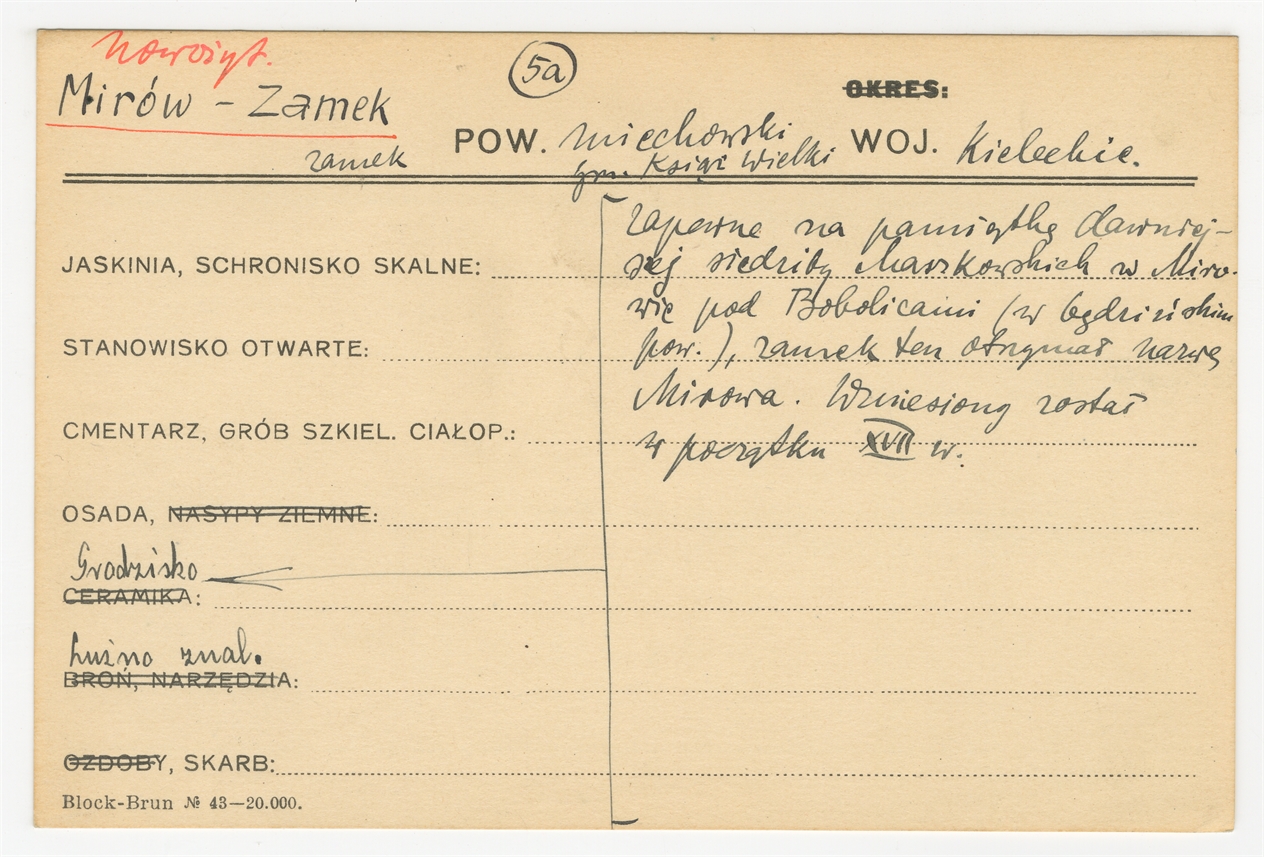 Nowożyt.
5a
Mirów - Zamek
OKRES:
zamek
POW. miechowski WOJ. Kieleckie.
gm. Książ Wielki
Zapewne na pamiątkę dawniej-
JASKINIA, SCHRONISKO SKALNE: szej siedziby Maszkowskich w Miro-
wie pod Bobolicami (w będzińskim
STANOWISKO OTWARTE: pow.), zamek ten otrzymał nazwę
Mirowa. Wzniesiony został
CMENTARZ, GRÓB SZKIEL. CIAŁOP.: w początku XVII w.
OSADA, NASYPY ZIEMNE:
Grodzisko
CERAMIKA:
Luźno znal.
BROŃ, NARZĘDZIA:
OZDOBY, SKARB:
Block-Brun № 43—20.000.